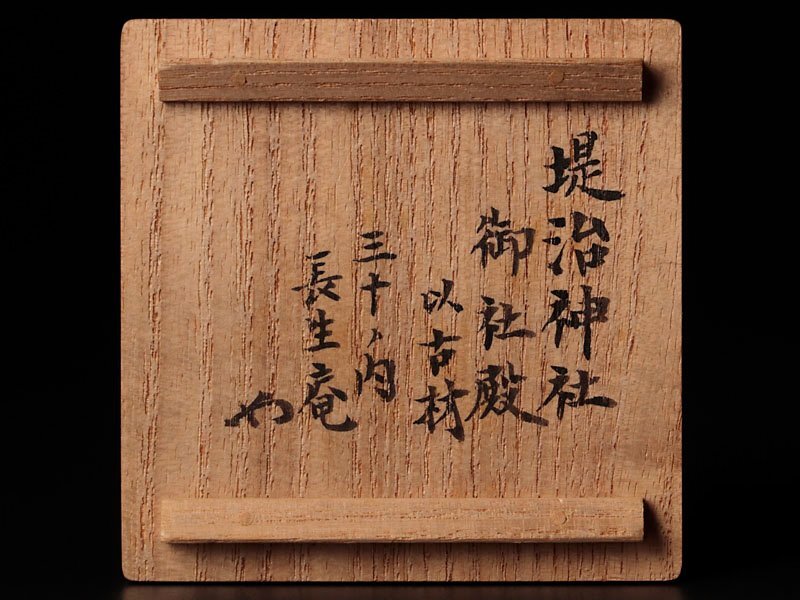 堤治神社
御社殿
以古材
三十ノ内
長生庵